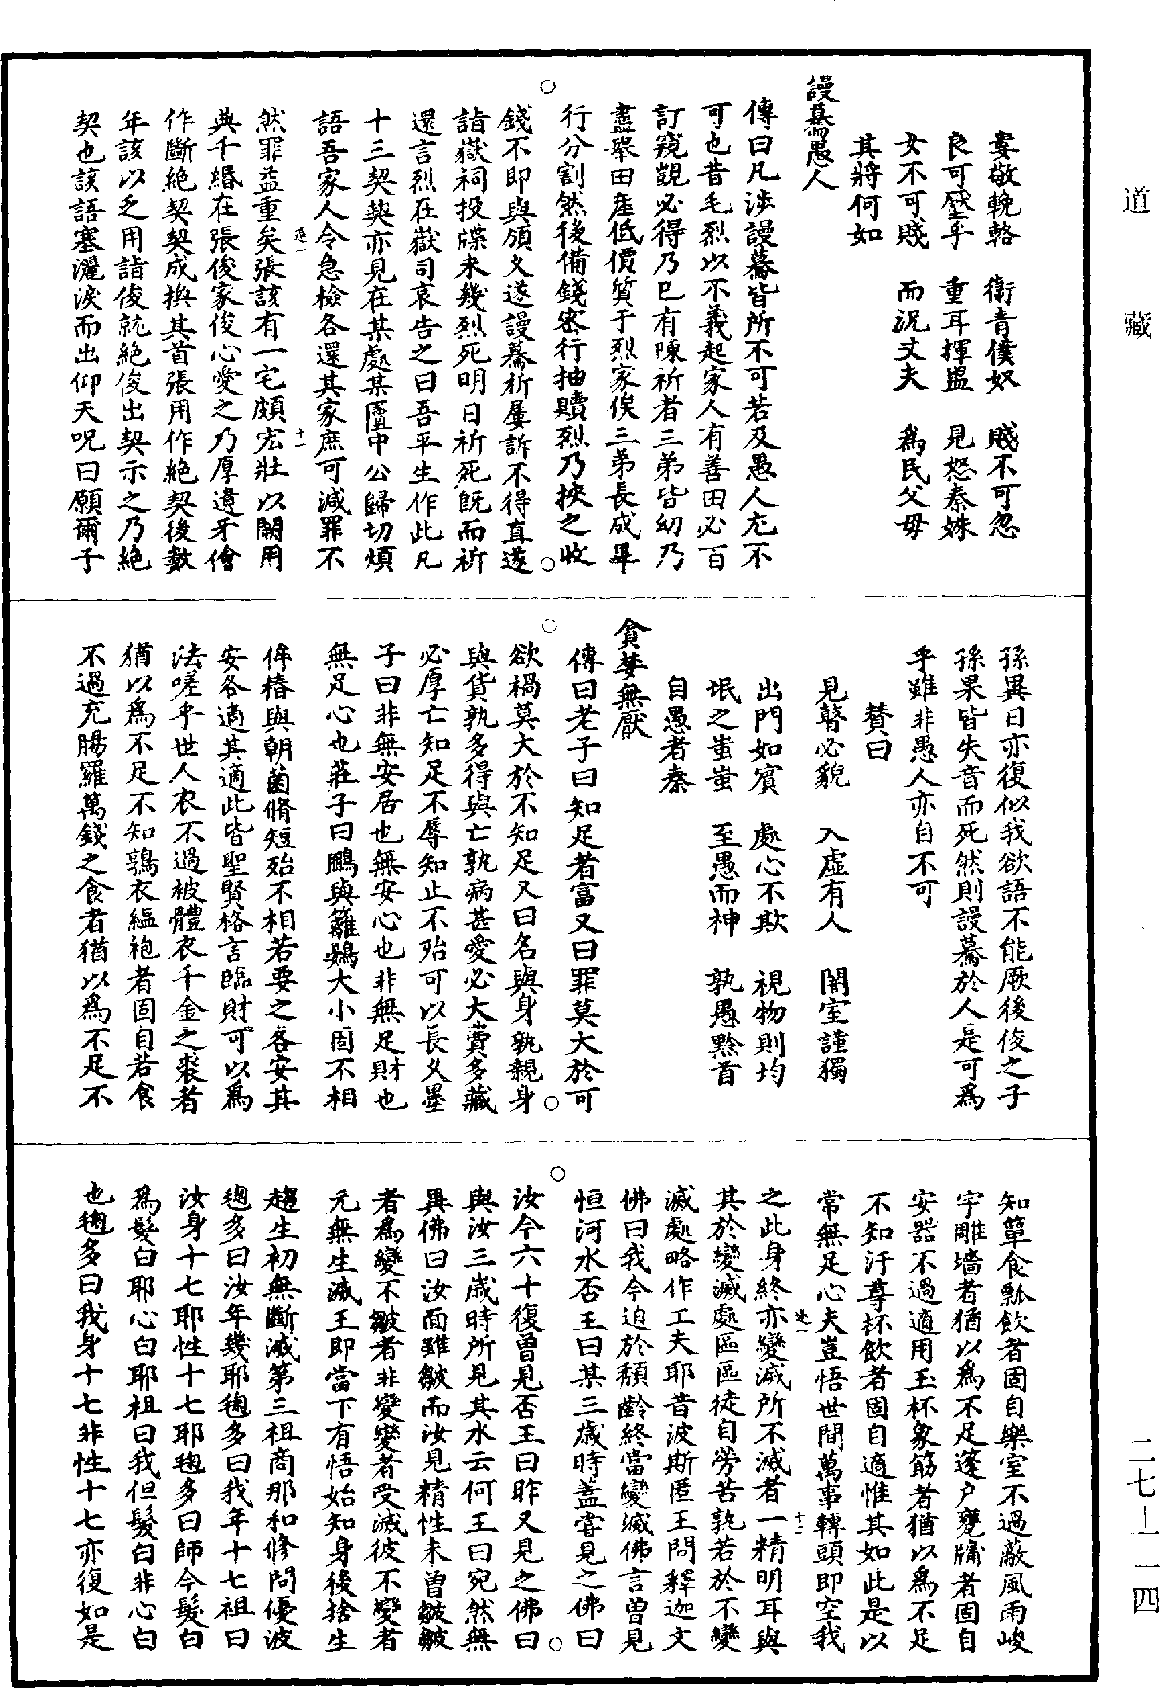 道藏
二七—一一四
婁敬輓輅　衛青僕奴　賤不可忽
良可壓乎　重耳揮盥　見怒秦姝
女不可賤　而況丈夫　為民父母
其將何如
謾驀愚人
傳曰凡涉謾驀皆所不可若及愚人尤不
可也昔毛烈以不義起家人有善田必百
訂窺覬必得乃巳有陳祈者三弟皆幼乃
盡舉田產低價質于烈家俟三弟長成畢
行分割然後備錢密行抽贖烈乃挾之收
錢不即與頒久遂謾驀祈屢訴不得直遂
詣嶽祠投牒未幾烈死明日祈死既而祈
還言烈在嶽司哀告之曰吾平生作此凡
十三契契亦見在某處某匱中公歸切煩
語吾家人令急檢各還其家庶可減罪不
然罪益重矣張該有一宅頗宏壯以闕用
典千緡在張俊家俊心愛之乃厚遺牙儈
作斷絕契契成換其首張用作絕契後數
年該以乏用詣俊就絕俊出契示之乃絕
契也該語塞灑淚而出仰天呪曰願爾子
孫異日亦復似我欲語不能厥後俊之子
孫果皆失音而死然則謾驀於人是可為
乎雖非愚人亦自不可
贊曰
見瞽必貌　入虛有人　闇室謹獨
出門如賓　處心不欺　視物則均
氓之蚩蚩　至愚而神　孰愚黔首
自愚者秦
貪婪無厭
傳曰老子曰知足者富又曰罪莫大於可
欲禍莫大於不知足又曰名與身孰親身
與貨孰多得與亡孰病甚愛必大費多藏
必厚亡知足不辱知止不殆可以長久墨
子曰非無安居也無安心也非無足財也
無足心也莊子曰鵬與籬鷃大小固不相
侔椿與朝菌脩短殆不相若要之各安其
安各適其適此皆聖賢格言臨財可以為
法嗟乎世人衣不過被體衣千金之裘者
猶以為不足不知鶉衣縕袍者固自若食
不過充腸羅萬錢之食者猶以為不足不
知簞食瓢飲者固自樂室不過蔽風雨峻
宇雕墻者猶以為不足蓬戶甕牖者固自
安器不過適用玉杯象筯者猶以為不足
不知汙尊抔飲者固自適惟其如此是以
常無足心夫豈悟世間萬事轉頭即空我
之此身終亦變滅所不滅者一精明耳與
其於變滅處區區徒自勞苦孰若於不變
滅處略作工夫耶昔波斯匿王問釋迦文
佛曰我今迫於頹齡終當變滅佛言曾見
恒河水否王曰某三歲時蓋嘗見之佛曰
汝今六十復曾見否王曰昨又見之佛曰
與汝三歲時所見其水云何王曰宛然無
異佛曰汝面雖皺而汝見精性未曾皺皺
者為變不皺者非變變者受滅彼不變者
元無生滅王即當下有悟始知身後捨生
趨生初無斷滅第三祖商那和修問優波
毱多曰汝年幾耶毱多曰我年十七祖曰
汝身十七耶性十七耶毱多曰師今髮白
為髮白耶心白耶祖曰我但髮白非心白
也毱多曰我身十七非性十七亦復如是